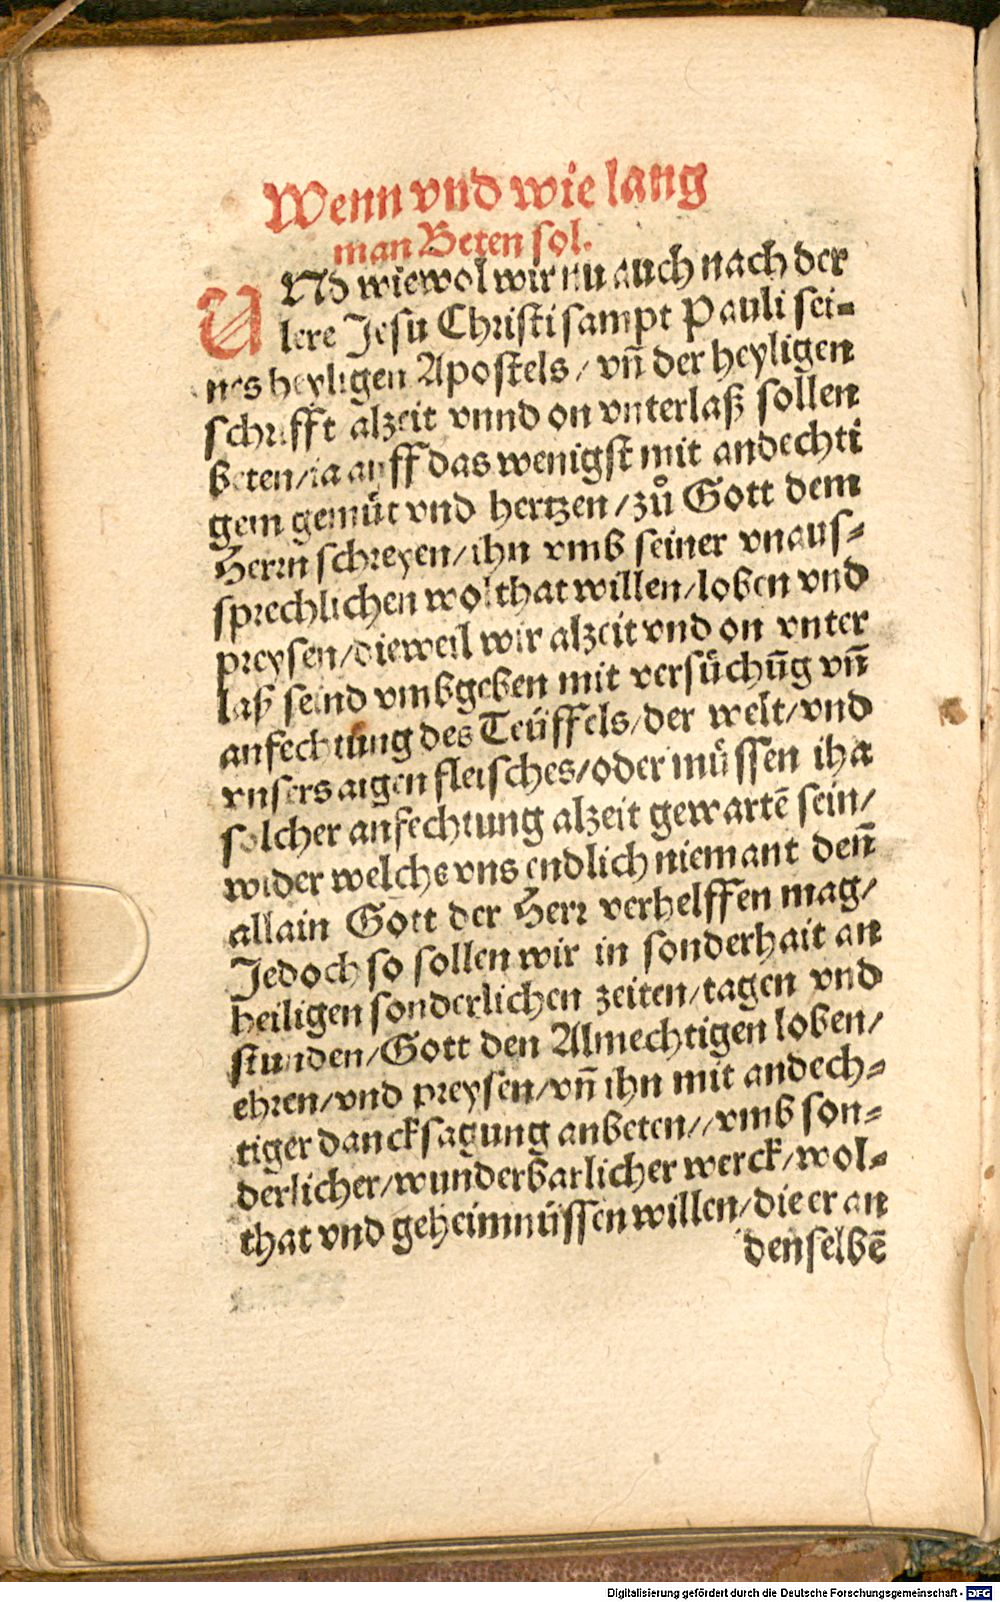 Wenn vnd wie lang
man Beten sol.
VNd wiewol wir nu auch nach der
lere Jesu Christi sampt Pauli sei⸗
nes heyligen Apostels / vñ der heyligen
schrifft alzeit vnnd on vnterlaß sollen
beten/ia auff das wenigst mit andechti
gem gemüt vnd hertzen / zů Gott dem
Herrn schreyen/ihn vmb seiner vnaus⸗
sprechlichen wolthat willen/loben vnd
preysen/dieweil wir alzeit vnd on vnter
laß seind vmbgeben mit versůchũg vñ
anfechtung des Teüffels/der welt/vnd
vnsers aigen fleisches/oder můssen iha
solcher anfechtung alzeit gewartẽ sein/
wider welche vns endlich niemant deñ
allain Gott der Herr verhelffen mag/
Jedoch so sollen wir in sonderhait an
heiligen sonderlichen zeiten/tagen vnd
stunden/Gott den Almechtigen loben/
ehren/vnd preysen/vñ ihn mit andech⸗
tiger dancksagung anbeten//vmb son⸗
derlicher/wunderbarlicher werck/wol⸗
that vnd geheimnüssen willen/die er an
denselbẽ
Digitalisierung gefördert durch die Deutsche Forschungsgemeinschaft - DFG